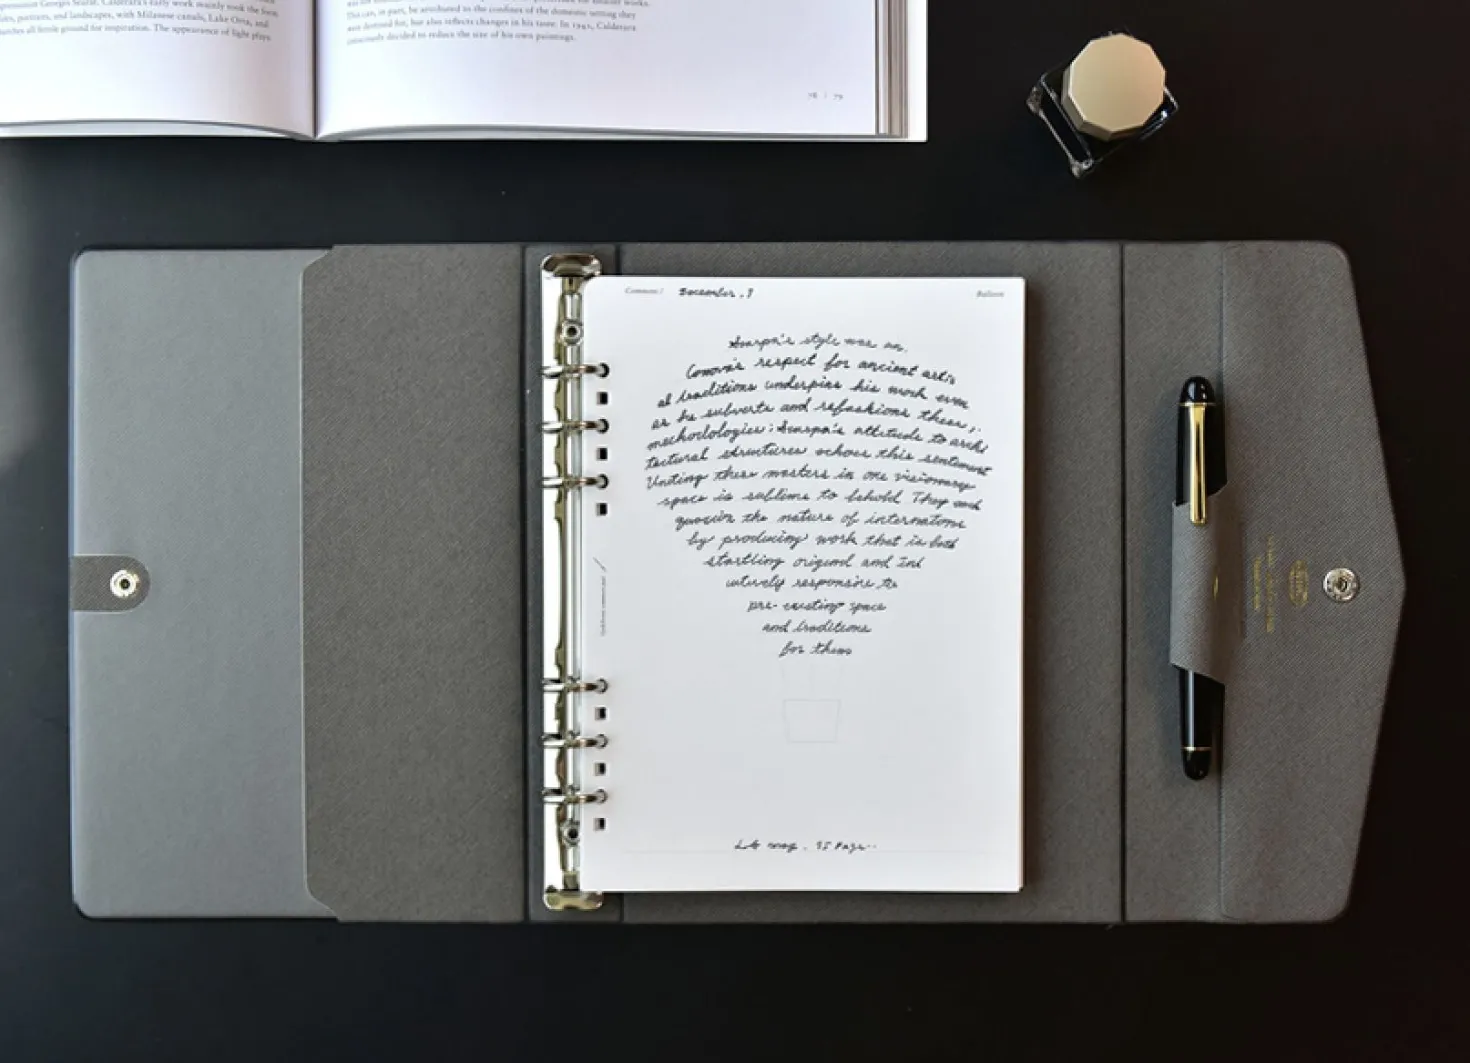 Georges Seurat. Calderara's early work mainly took the form
portraits, and landscapes, with Milanese canals, Lake Orta, and
all fertile ground for inspiration. The appearance of light plays
This can, in part, be attributed to the confines of the domestic setting they
were destined for, but also reflects changes in his taste. In 1942, Calderara
consciously decided to reduce the size of his own paintings.
78 | 79
December. 9
Balloon
Scarpa's style was an.
Canova's respect for ancient artis
al traditions underpins his work even
as he subverts and refashions these,.
mechodologies; Scarpa's attitude to archi
tectural structures echoes this sentiment
Uniting these masters in one visionary
space is sublime to behold They each
question the nature of
by producing work that is both
startling original and Ind
uitively responsive to
pre-existing space
and traditions
for them
95 Page..